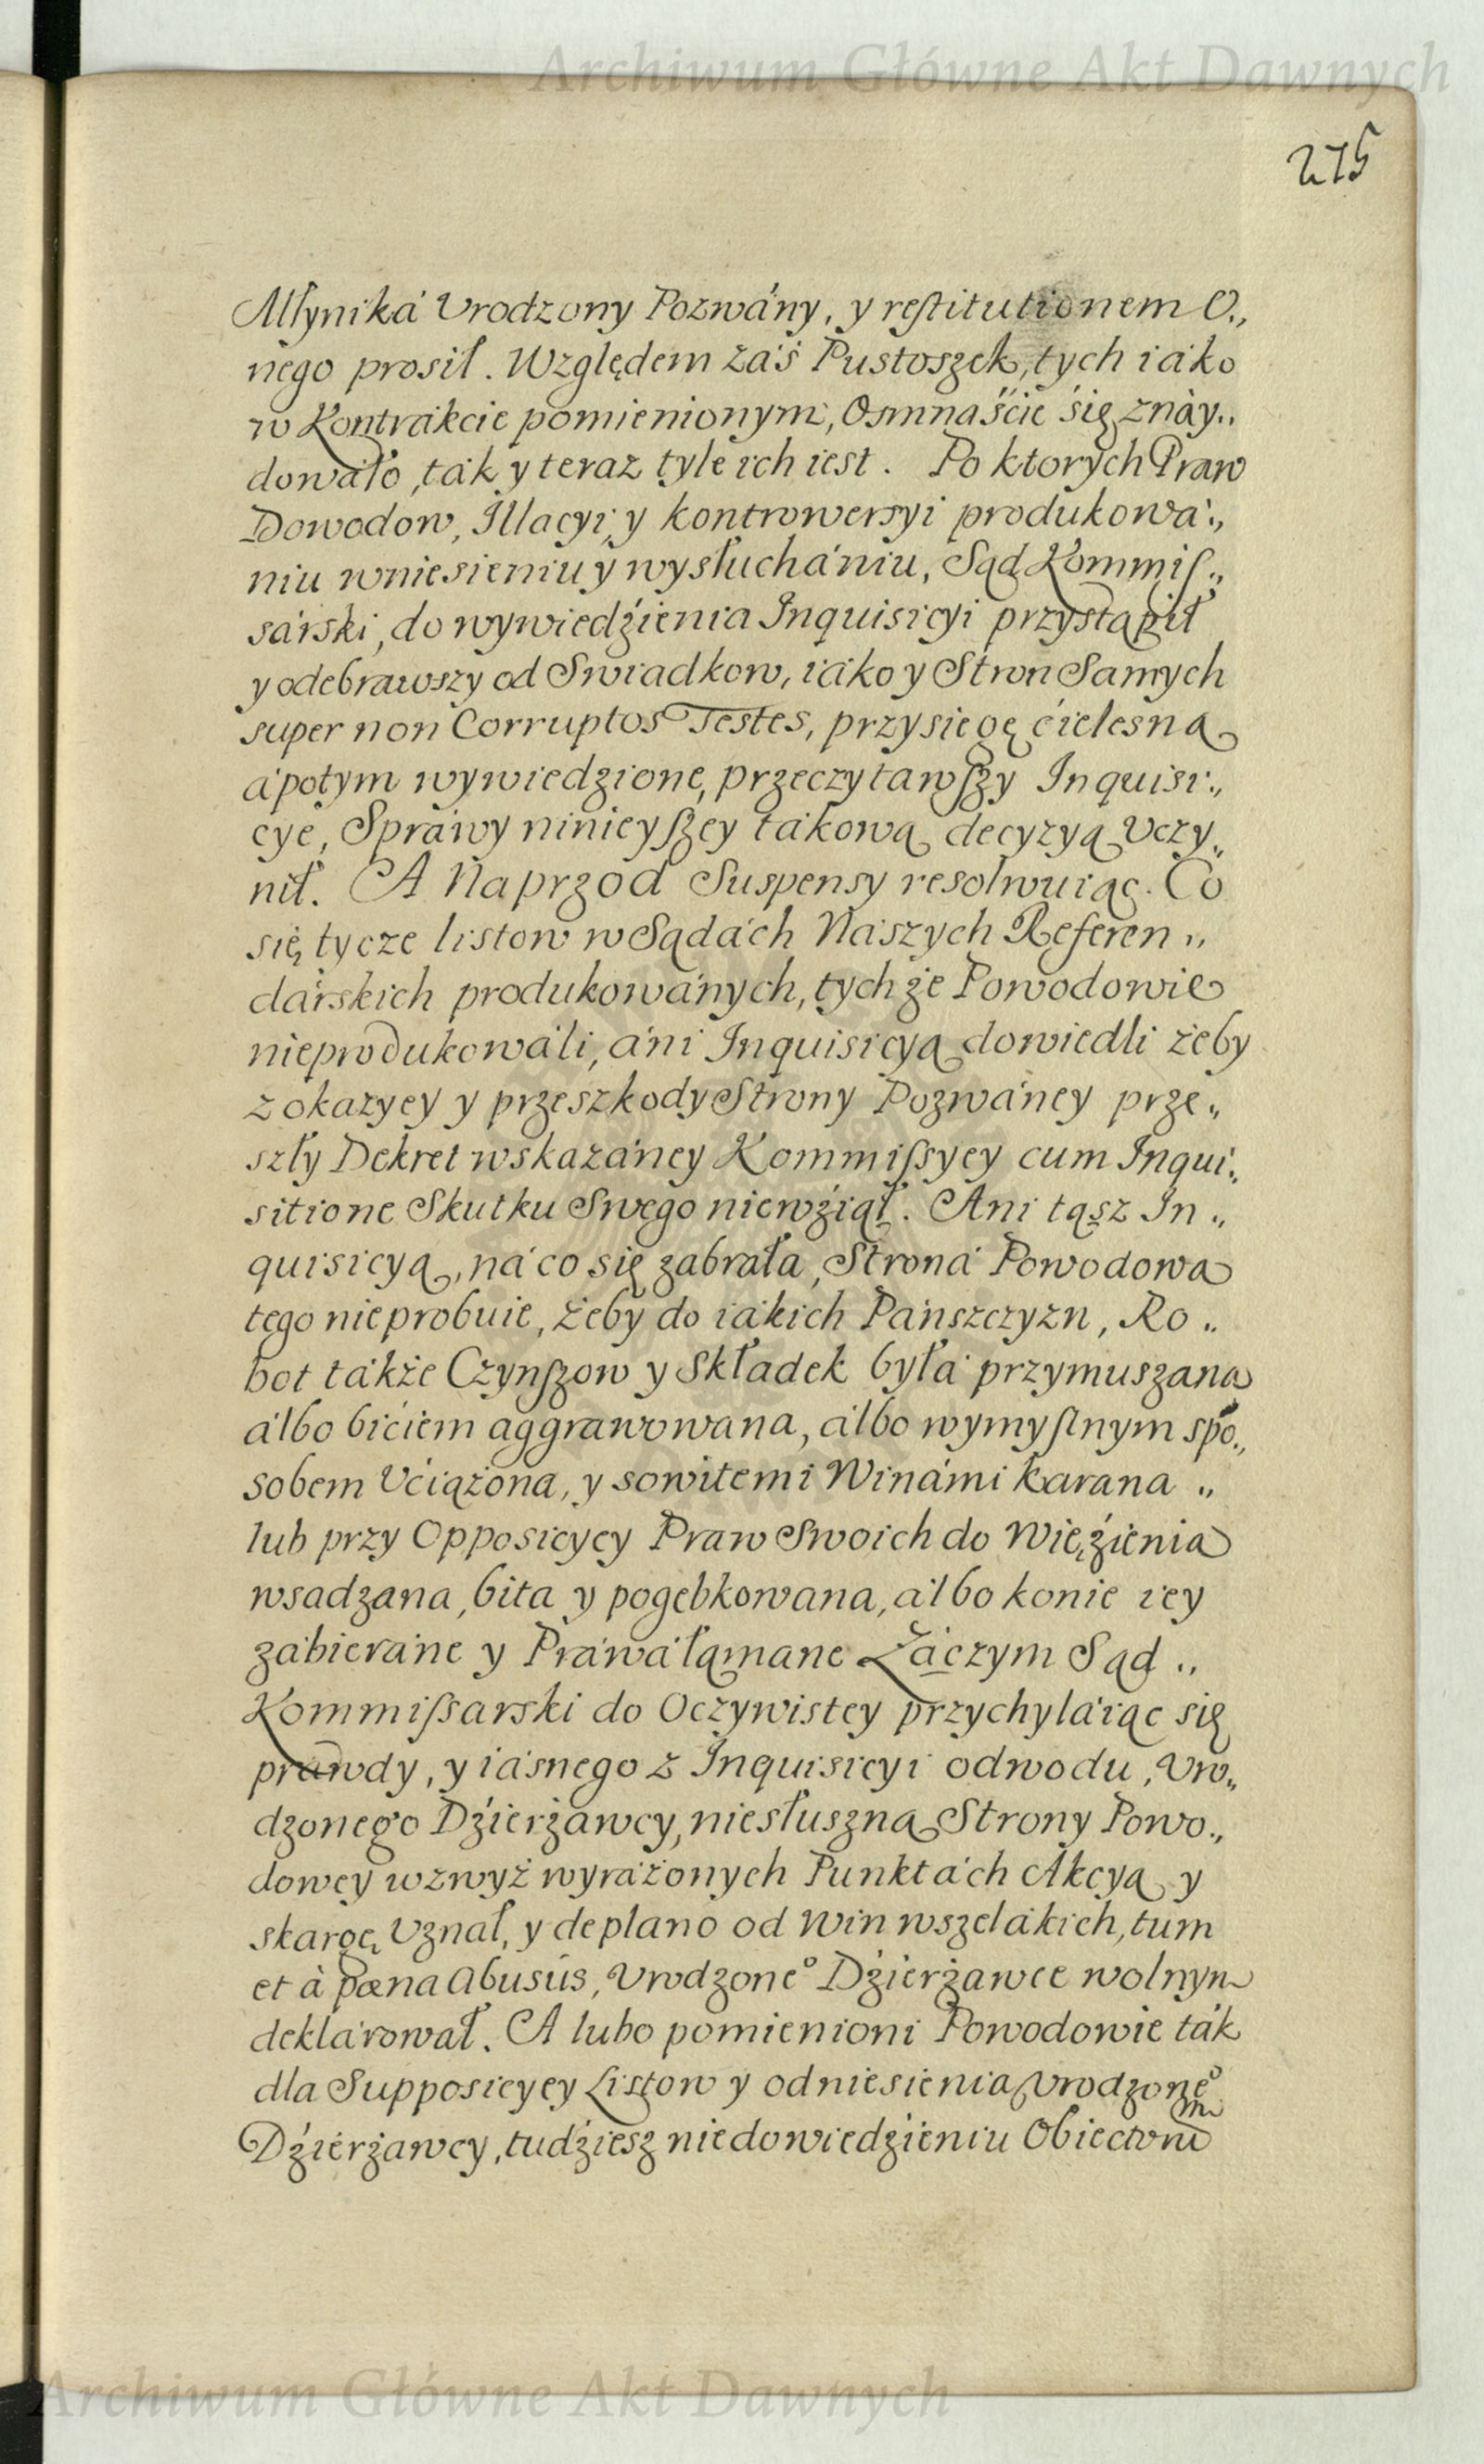 Archiwum Główne Akt Dawnych
275
Młyniká Vrodzony Pozwány, y reſtitutionem O„
nego prosił. Względem záś Pustoszek, tych iáko
w Kontrákcie pomienionym, Osmnaśćie śię znáy„
dowáło, ták y teraz tyle ich iest. Po ktorych Praw
Dowodow, Illacyi, y kontrowersyi produkowá„
niu wniesieniu y wysłuchániu, Sąd Kommiſ„
sárski, do wywiedźienia Inquisicyi przystąpił
y odebrawszy od Swiadkow, iáko y Stron Samych
super non Corruptos Testes, przysięgę ćielesną
á potym wywiedzione, przeczytawſzy Inquisi„
cye, Spráwy ninieyſzey tákową decyzyą Vczy„
nił. A Naprzod Suspensy resolwuiąc. Co
się tycze listow w Sądách Nászych Referen„
dárskich produkowánych, tychże Powodowie
nieprodukowáli, áni Inquisicyą dowiedli żeby
z okazyey y przeszkody Strony Pozwáney prze„
szły Dekret wskazáney Kommiſsyey cum Inqui„
sitione Skutku Swego niewźiął. Ani tąsz In„
quisicyą, ná co się zabrała, Stroná Powodowa
tego nieprobuie, żeby do iákich Pánszczyzn, Ro„
bot tákże Czynſzow y Składek byłá przymuszana
álbo bićiem aggrawowana, álbo wymyſlnym spo„
sobem Vćiążona, y sowitemi Winámi karana „
lub przy Opposicyey Praw Swoich do Więźienia
wsadzana, bita y pogębkowana, álbo konie iey
zábieráne y Práwá łąmane Záczym Sąd „
Kommiſsarski do Oczywistey przychyláiąc się
prawdy, y iásnego z Inquisicyi odwodu, Vro„
dzonego Dźierżawcy, niesłuszną Strony Powo„
dowey wzwyż wyráżonych Punktách Akcyą y
skargę Vznał, y deplano od Win wszelákich, tum
et à pœna Abusûs, Vrodzone° Dźierżawce wolnym
deklárował. A lubo pomienioni Powodowie ták
dla Supposicyey Listow y odniesienia Vrodzone°
Dźierżawcy, tudźiesz niedowiedźieniu Obiectorum
Archiwum Główne Akt Dawnych